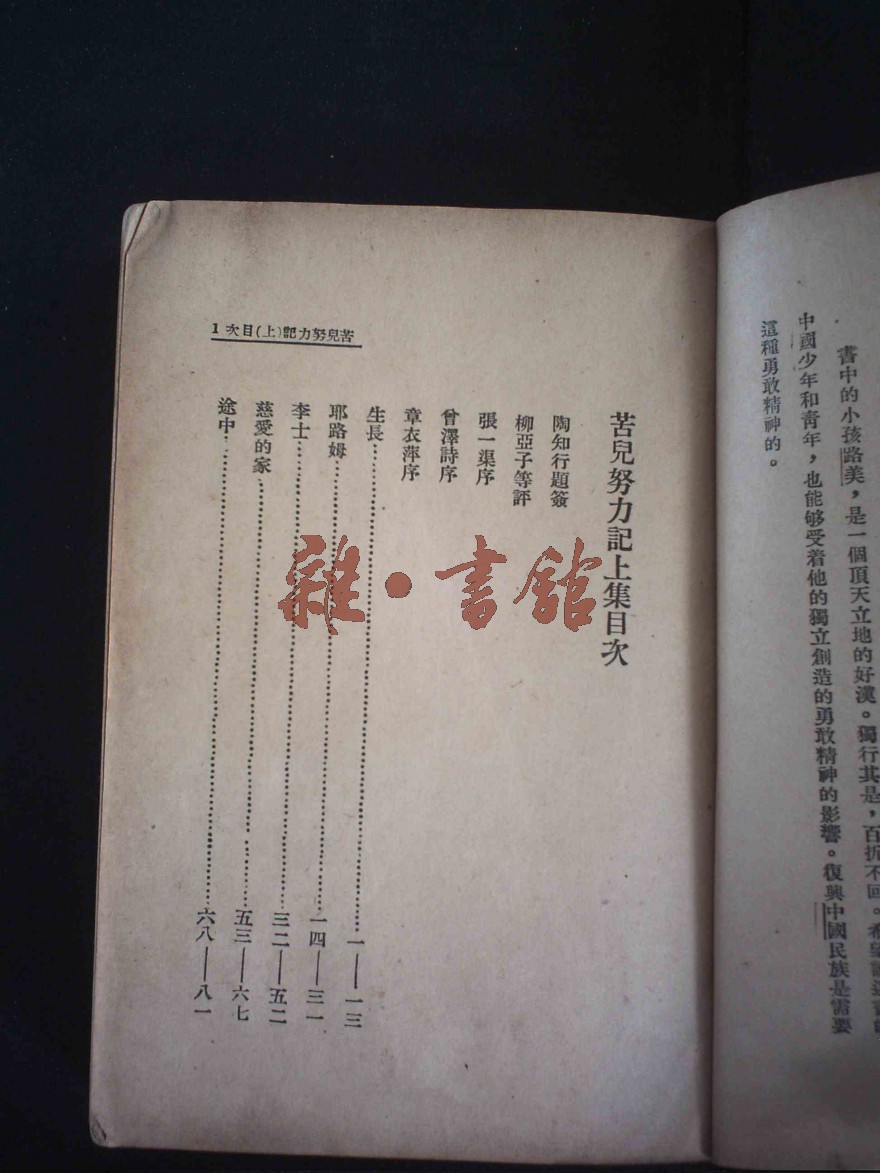 書中的小孩路美，是一個頂天立地的好漢。獨行其是，百折不回。希望讀這書的
中國少年和青年，也能够受着他的獨立創造的勇敢精神的影響。復興中國民族是需要
這種勇敢精神的。
苦兒努力記(上)目次 1
苦兒努力記上集目次
陶知行題簽
柳亞子等評
張一渠序
曾澤詩序
章衣萍序
生長⋯⋯⋯⋯⋯⋯⋯⋯⋯⋯一——一三
耶路姆⋯⋯⋯⋯⋯⋯⋯⋯⋯⋯一四——三一
李士⋯⋯⋯⋯⋯⋯⋯⋯⋯⋯三二——五二
慈愛的家⋯⋯⋯⋯⋯⋯⋯⋯⋯⋯五三——六七
途中⋯⋯⋯⋯⋯⋯⋯⋯⋯⋯六八——八一
雜·書館